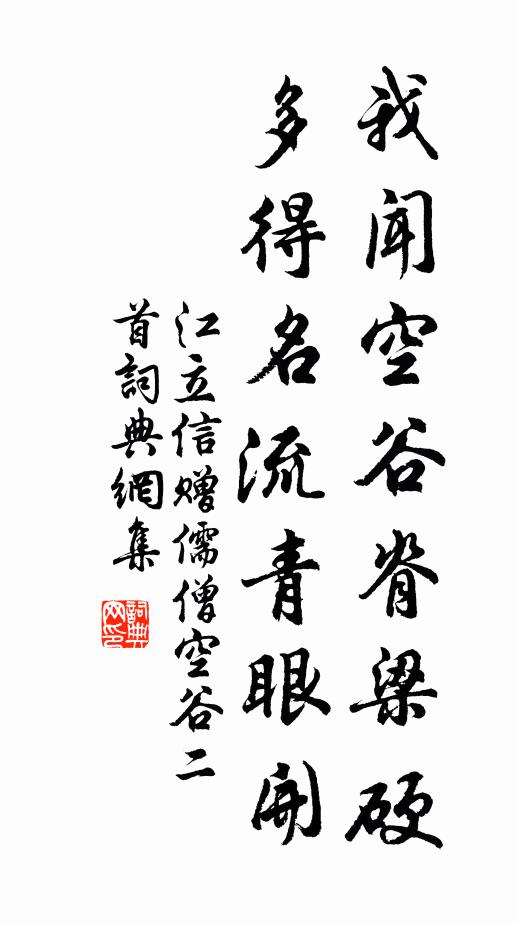 我聞空谷脊梁硬
多得名流青眼開
江立信赠儒僧空谷二
首詞典網集
詞典
网印